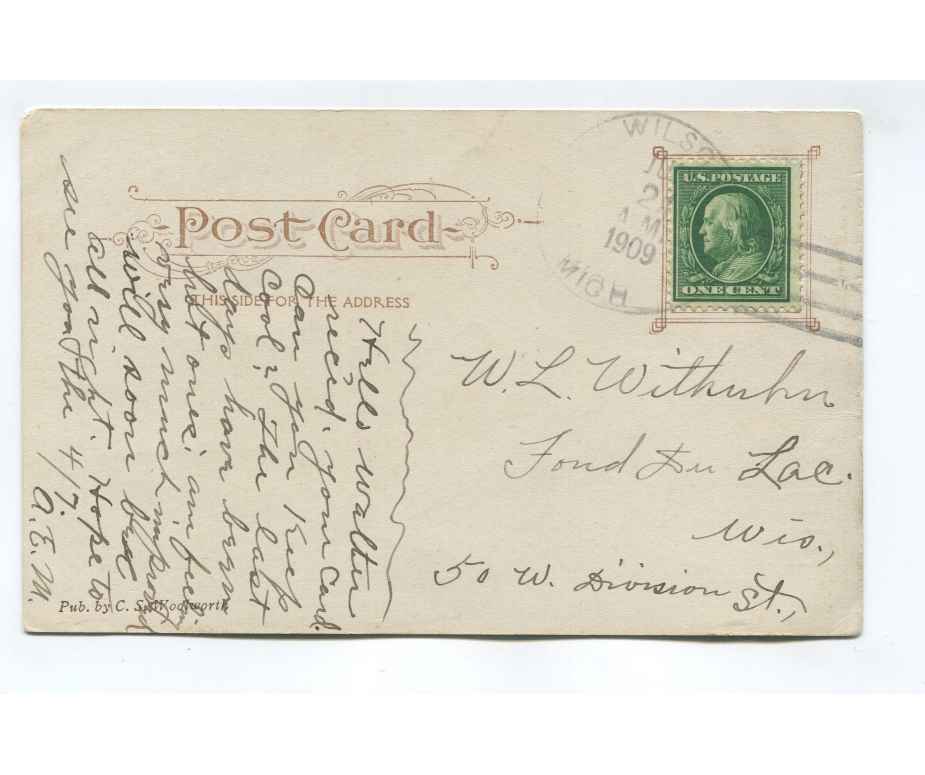 WILSO
JU
2
A M
1909
MICH
U.S. POSTAGE
ONE CENT
Post Card
THIS SIDE FOR THE ADDRESS
Hello Walter
rec'd. your card.
Can you keep
cool? The last
days have been
hot ones; am feeling
very much improved
will soon be
all right. Hope to
see you the 4/7.
A. E. M.
W. L. Withuhn
Fond Du Lac.
Wis.,
50 W. Division St.,
Pub. by C. S. Woolworth